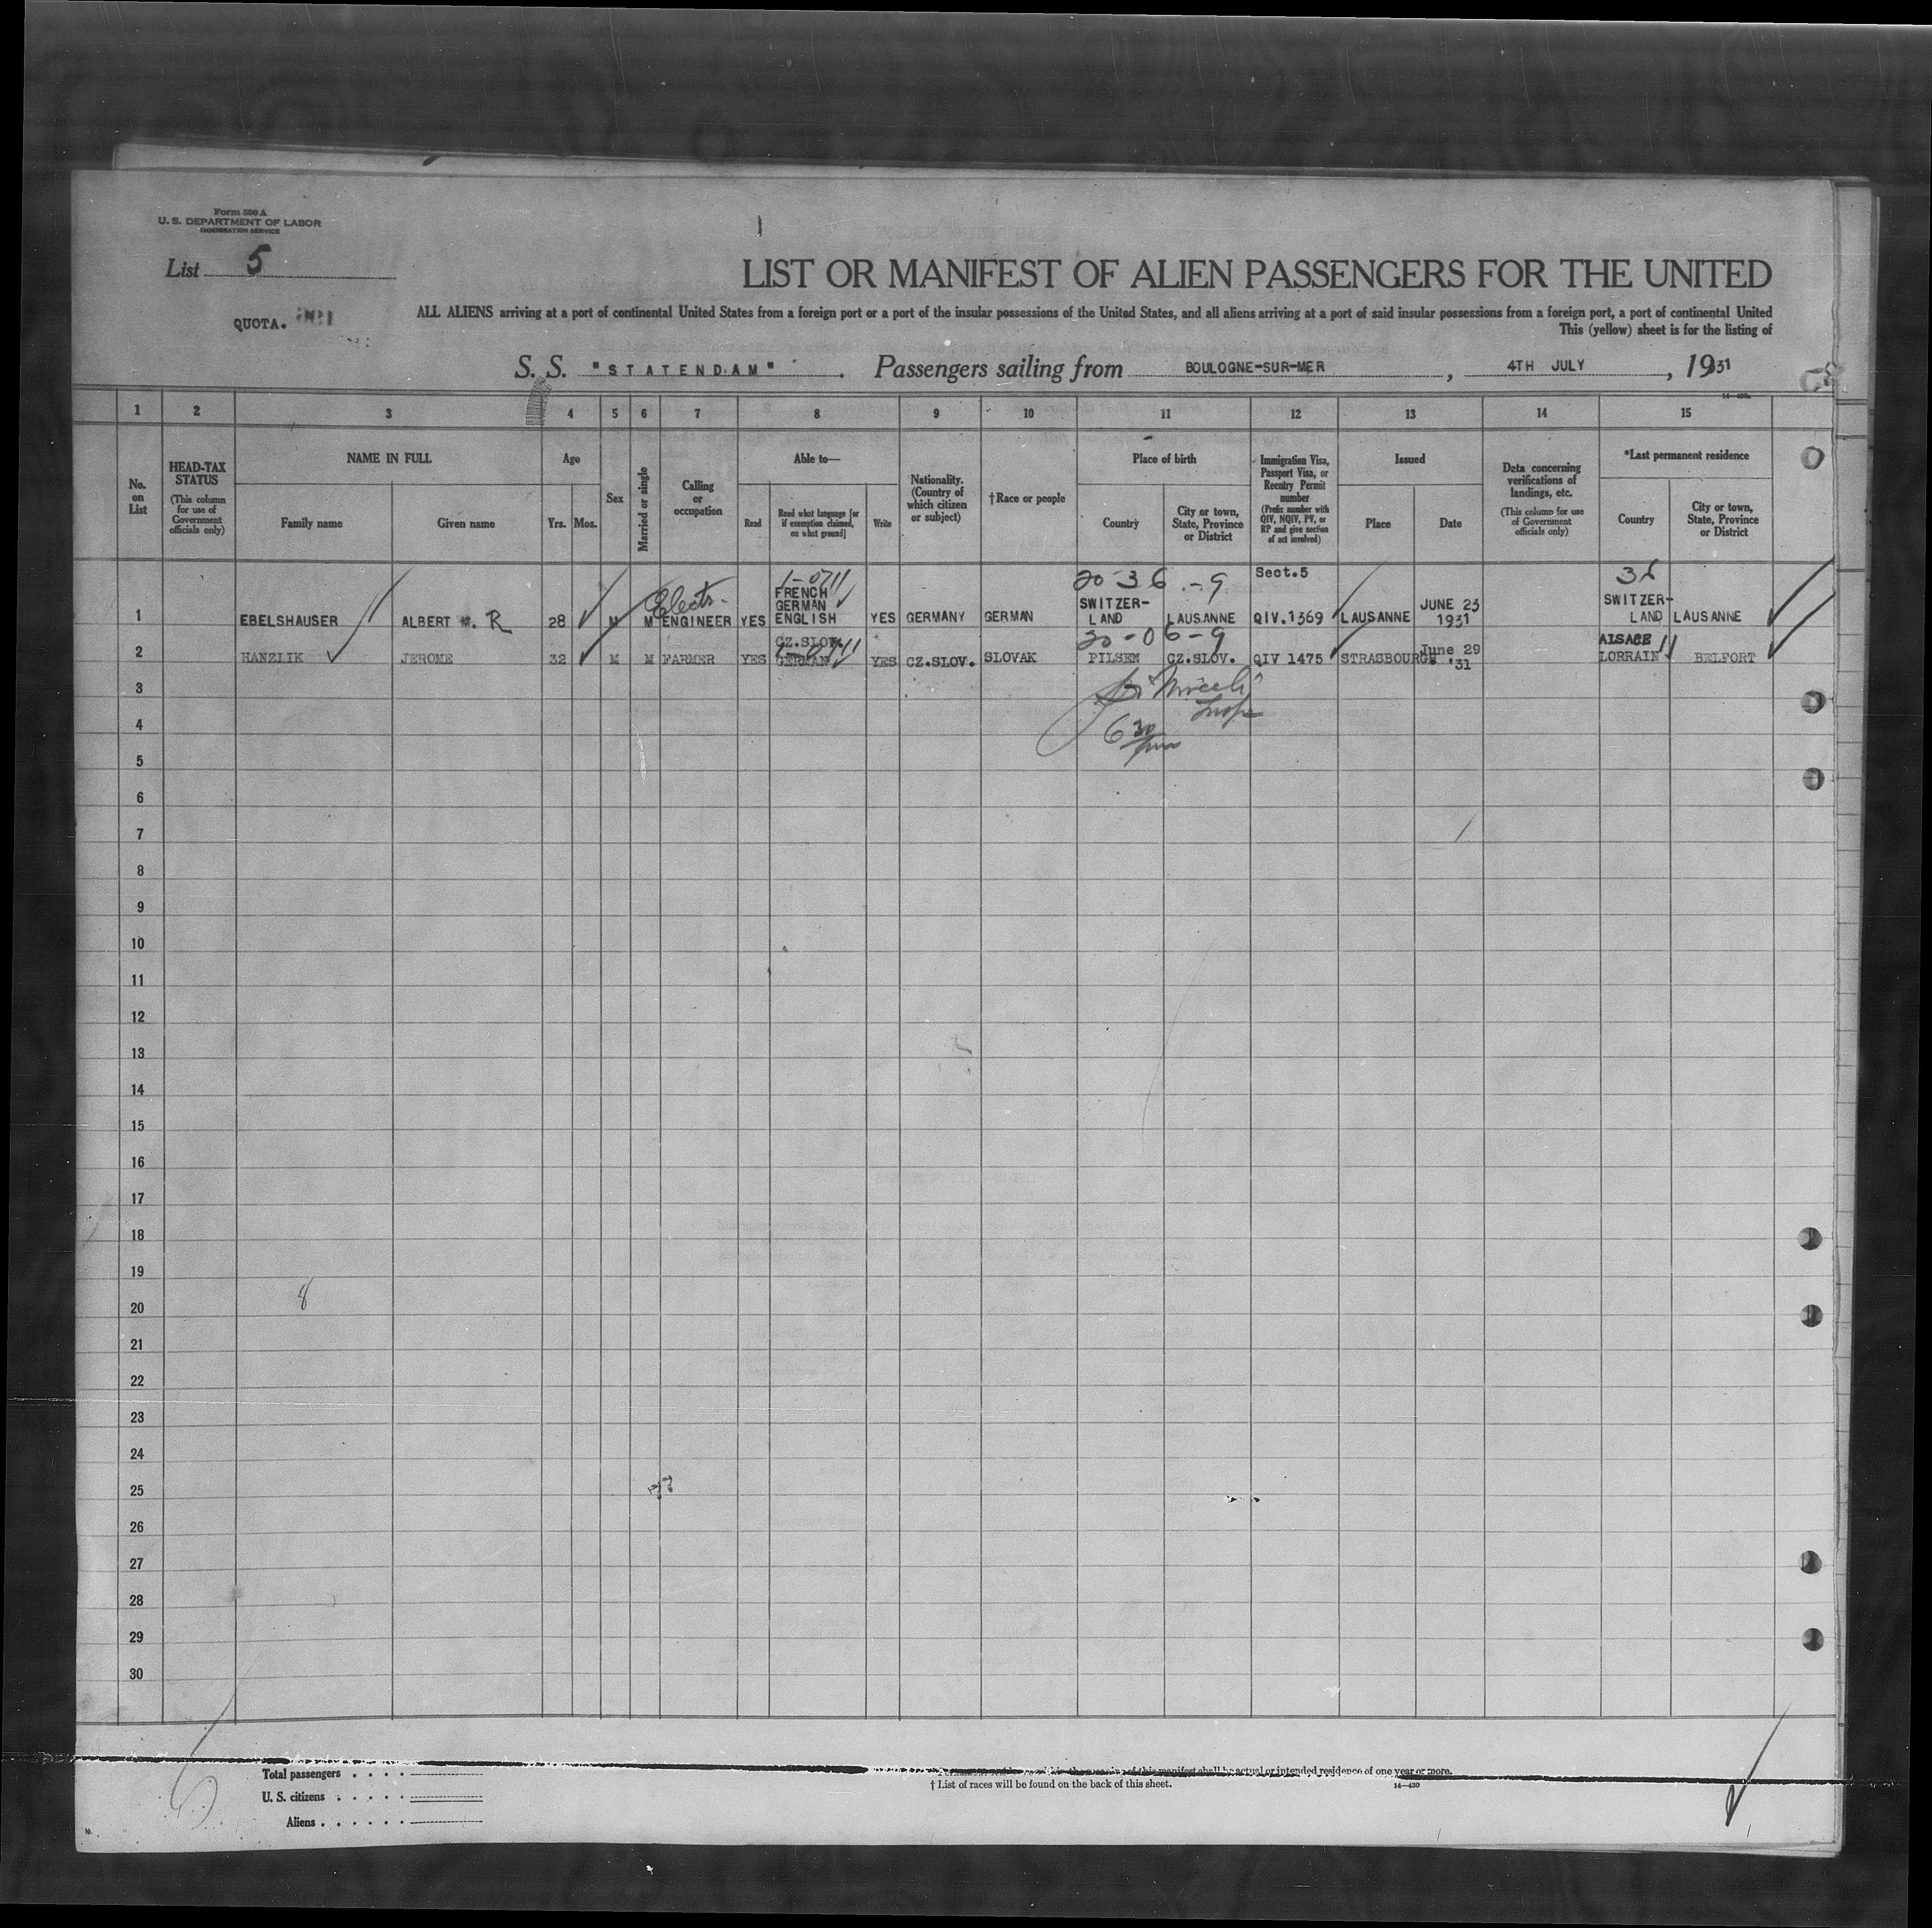 Form 500 A
U. S. DEPARTMENT OF LABOR
IMMIGRATION SERVICE
List 5
LIST OR MANIFEST OF ALIEN PASSENGERS FOR THE UNITED
QUOTA.
ALL ALIENS arriving at a port of continental United States from a foreign port or a port of the insular possessions of the United States, and all aliens arriving at a port of said insular possessions from a foreign port, a port of continental United
This (yellow) sheet is for the listing of
S. S. "STATENDAM" . Passengers sailing from BOULOGNE-SUR-MER , 4TH JULY , 1931
1 2 3 4 5 6 7 8 9 10 11 12 13 14 15
No. on List
HEAD-TAX STATUS
(This column for use of Government officials only)
NAME IN FULL
Family name
Given name
Age
Yrs. Mos.
Sex
Married or single
Calling or occupation
Able to—
Read
Read what language [or if exemption claimed, on what ground]
Write
Nationality. (Country of which citizen or subject)
†Race or people
Place of birth
Country
City or town, State, Province or District
Immigration Visa, Passport Visa, or Reentry Permit number
(Prefix number with QIV, NQIV, PV, or RP and give section of act involved)
Issued
Place
Date
Data concerning verifications of landings, etc.
(This column for use of Government officials only)
*Last permanent residence
Country
City or town, State, Province or District
20-36 .-9 Sect.5
1 EBELSHAUSER ALBERT R 28 M M Electr. ENGINEER YES FRENCH GERMAN ENGLISH YES GERMANY GERMAN SWITZER-LAND LAUSANNE QIV.1369 LAUSANNE JUNE 23 1931 SWITZER-LAND LAUSANNE
20-06-9
2 HANZLIK JEROME 32 M M FARMER YES CZ.SLOV. GERMAN YES CZ.SLOV. SLOVAK PILSEN CZ.SLOV. QIV 1475 STRASBOURG June 29 '31 ALSACE LORRAIN BELFORT
3
4
6 30
5
6
7
8
9
10
11
12
13
14
15
16
17
18
19
8
20
21
22
23
24
25
26
27
28
29
30
Total passengers . . . .
of this manifest shall be actual or intended residence of one year or more.
† List of races will be found on the back of this sheet.
14—430
U. S. citizens . . . . .
Aliens . . . . . .